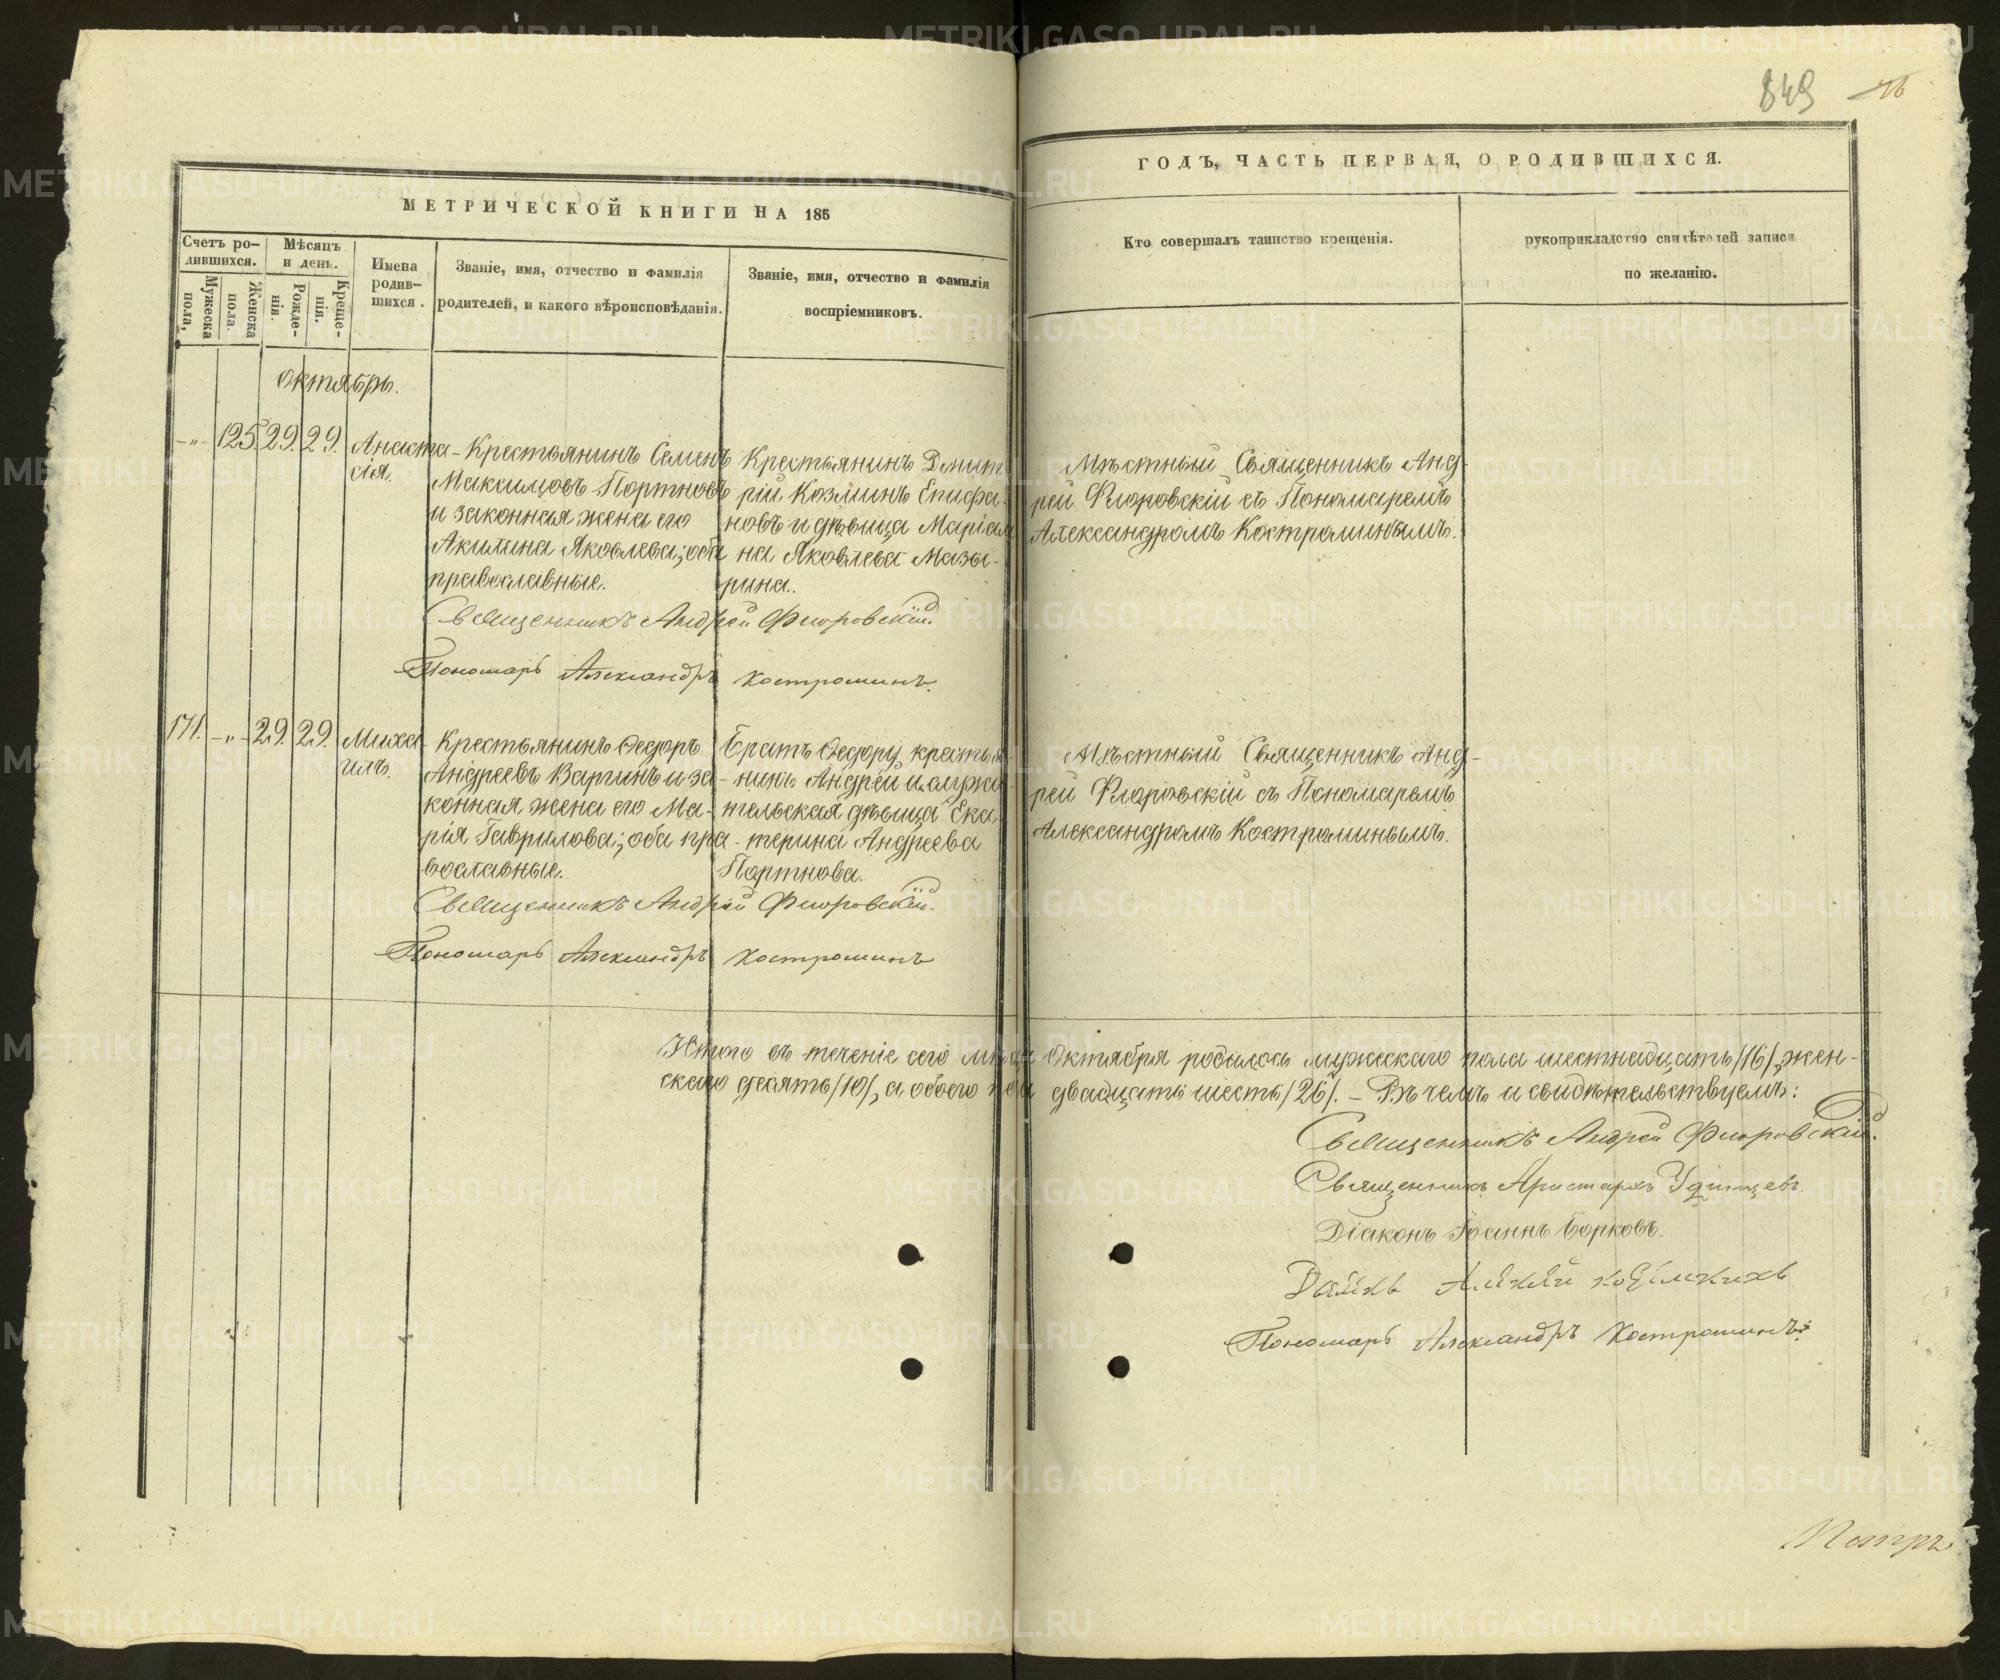 849 76
МЕТРИЧЕСКОЙ КНИГИ НА 185
ГОДЪ, ЧАСТЬ ПЕРВАЯ, О РОДИВШИХСЯ.
Счетъ ро-
дившихся.
Мужеска
пола,
Женска
пола.
Мѣсяцъ
и день.
Рожде-
нія.
Креще-
нія.
Имена
родив-
шихся.
Званіе, имя, отчество и фамилія
родителей, и какого вѣроисповѣданія.
Званіе, имя, отчество и фамилія
воспріемниковъ.
Кто совершалъ таинство крещенія.
рукоприкладство свидѣтелей записи
по желанію.
октябрь.
-"- 125. 29. 29.
Анаста-
сія.
Крестьянинъ Семенъ
Максимовъ Портновъ
и законная жена его
Акилина Яковлева; оба
православные.
Крестьянинъ Дмит
рій Козминъ Епифа-
новъ и дѣвица Маріам
на Яковлева Мазы-
рина.
Мѣстный Священникъ Анд-
рей Флоровскій съ Пономаремъ
Александромъ Костроминымъ.
Священникъ Андрей Флоровскій.
Пономарь Александръ Костроминъ.
171. -"- 29. 29.
Миха-
илъ.
Крестьянинъ Ѳедоръ
Андреевъ Варгинъ и за-
конная жена его Ма-
рія Гаврилова; оба пра-
вославные.
Братъ Ѳедору, крестья-
нинъ Андрей и служи-
тельская дѣвица Ека
терина Андреева
Портнова.
Мѣстный Священникъ Анд-
рей Флоровскій съ Пономаремъ
Александромъ Костроминымъ.
Священникъ Андрей Флоровскій.
Пономарь Александръ Костроминъ
Итого въ теченіе сего мѣсяца Октября родилось мужескаго пола шестнадцать /16/, жен-
скаго десять /10/, а обоего пола двадцать шесть /26/. – Въ чемъ и свидѣтельствуемъ:
Священникъ Андрей Флоровскій.
Священникъ Аристархъ Удинцевъ.
Діаконъ Іоаннъ Борковъ.
Дьячекъ Алексѣй
Пономарь Александръ Костроминъ.
METRIKI.GASO-URAL.RU